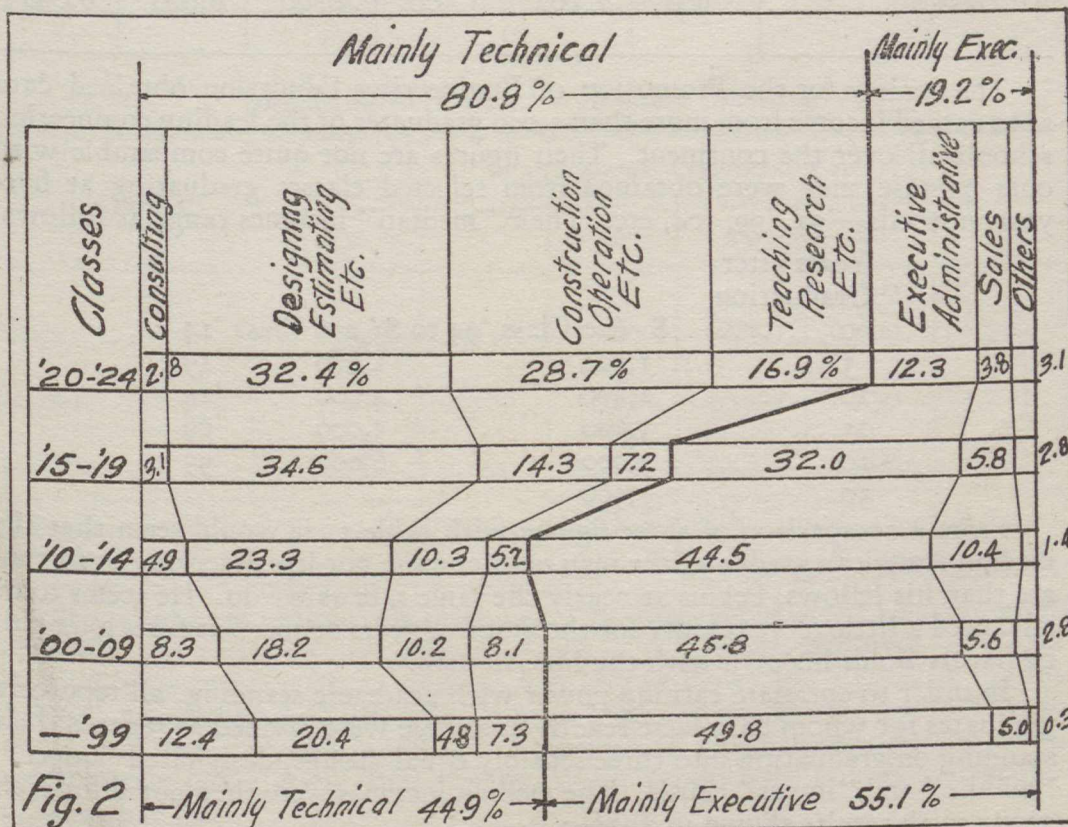 Mainly Technical
80.8%
Mainly Exec.
19.2%
Classes
Consulting
Designing
Estimating
Etc.
Construction
Operation
Etc.
Teaching
Research
Etc.
Executive
Administrative
Sales
Others
'20-'24 2.8 32.4% 28.7% 16.9% 12.3 3.8 3.1
'15-'19 3.1 34.6 14.3 7.2 32.0 5.8 2.8
'10-'14 4.9 23.3 10.3 5.2 44.5 10.4 1.4
'00-'09 8.3 18.2 10.2 8.1 46.8 5.6 2.8
—'99 12.4 20.4 4.8 7.3 49.8 5.0 0.3
Fig. 2
Mainly Technical 44.9%
Mainly Executive 55.1%